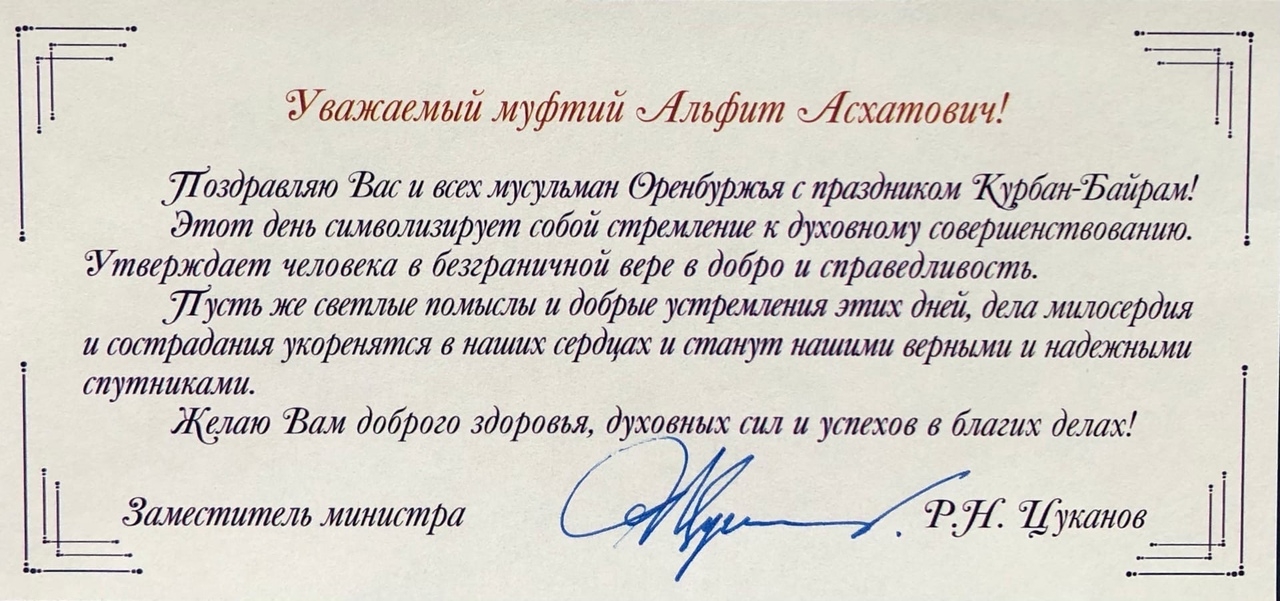 Уважаемый муфтий Альфит Асхатович!
Поздравляю Вас и всех мусульман Оренбуржья с праздником Курбан-Байрам!
Этот день символизирует собой стремление к духовному совершенствованию.
Утверждает человека в безграничной вере в добро и справедливость.
Пусть же светлые помыслы и добрые устремления этих дней, дела милосердия
и сострадания укоренятся в наших сердцах и станут нашими верными и надежными
спутниками.
Желаю Вам доброго здоровья, духовных сил и успехов в благих делах!
Заместитель министра Р.Н. Цуканов